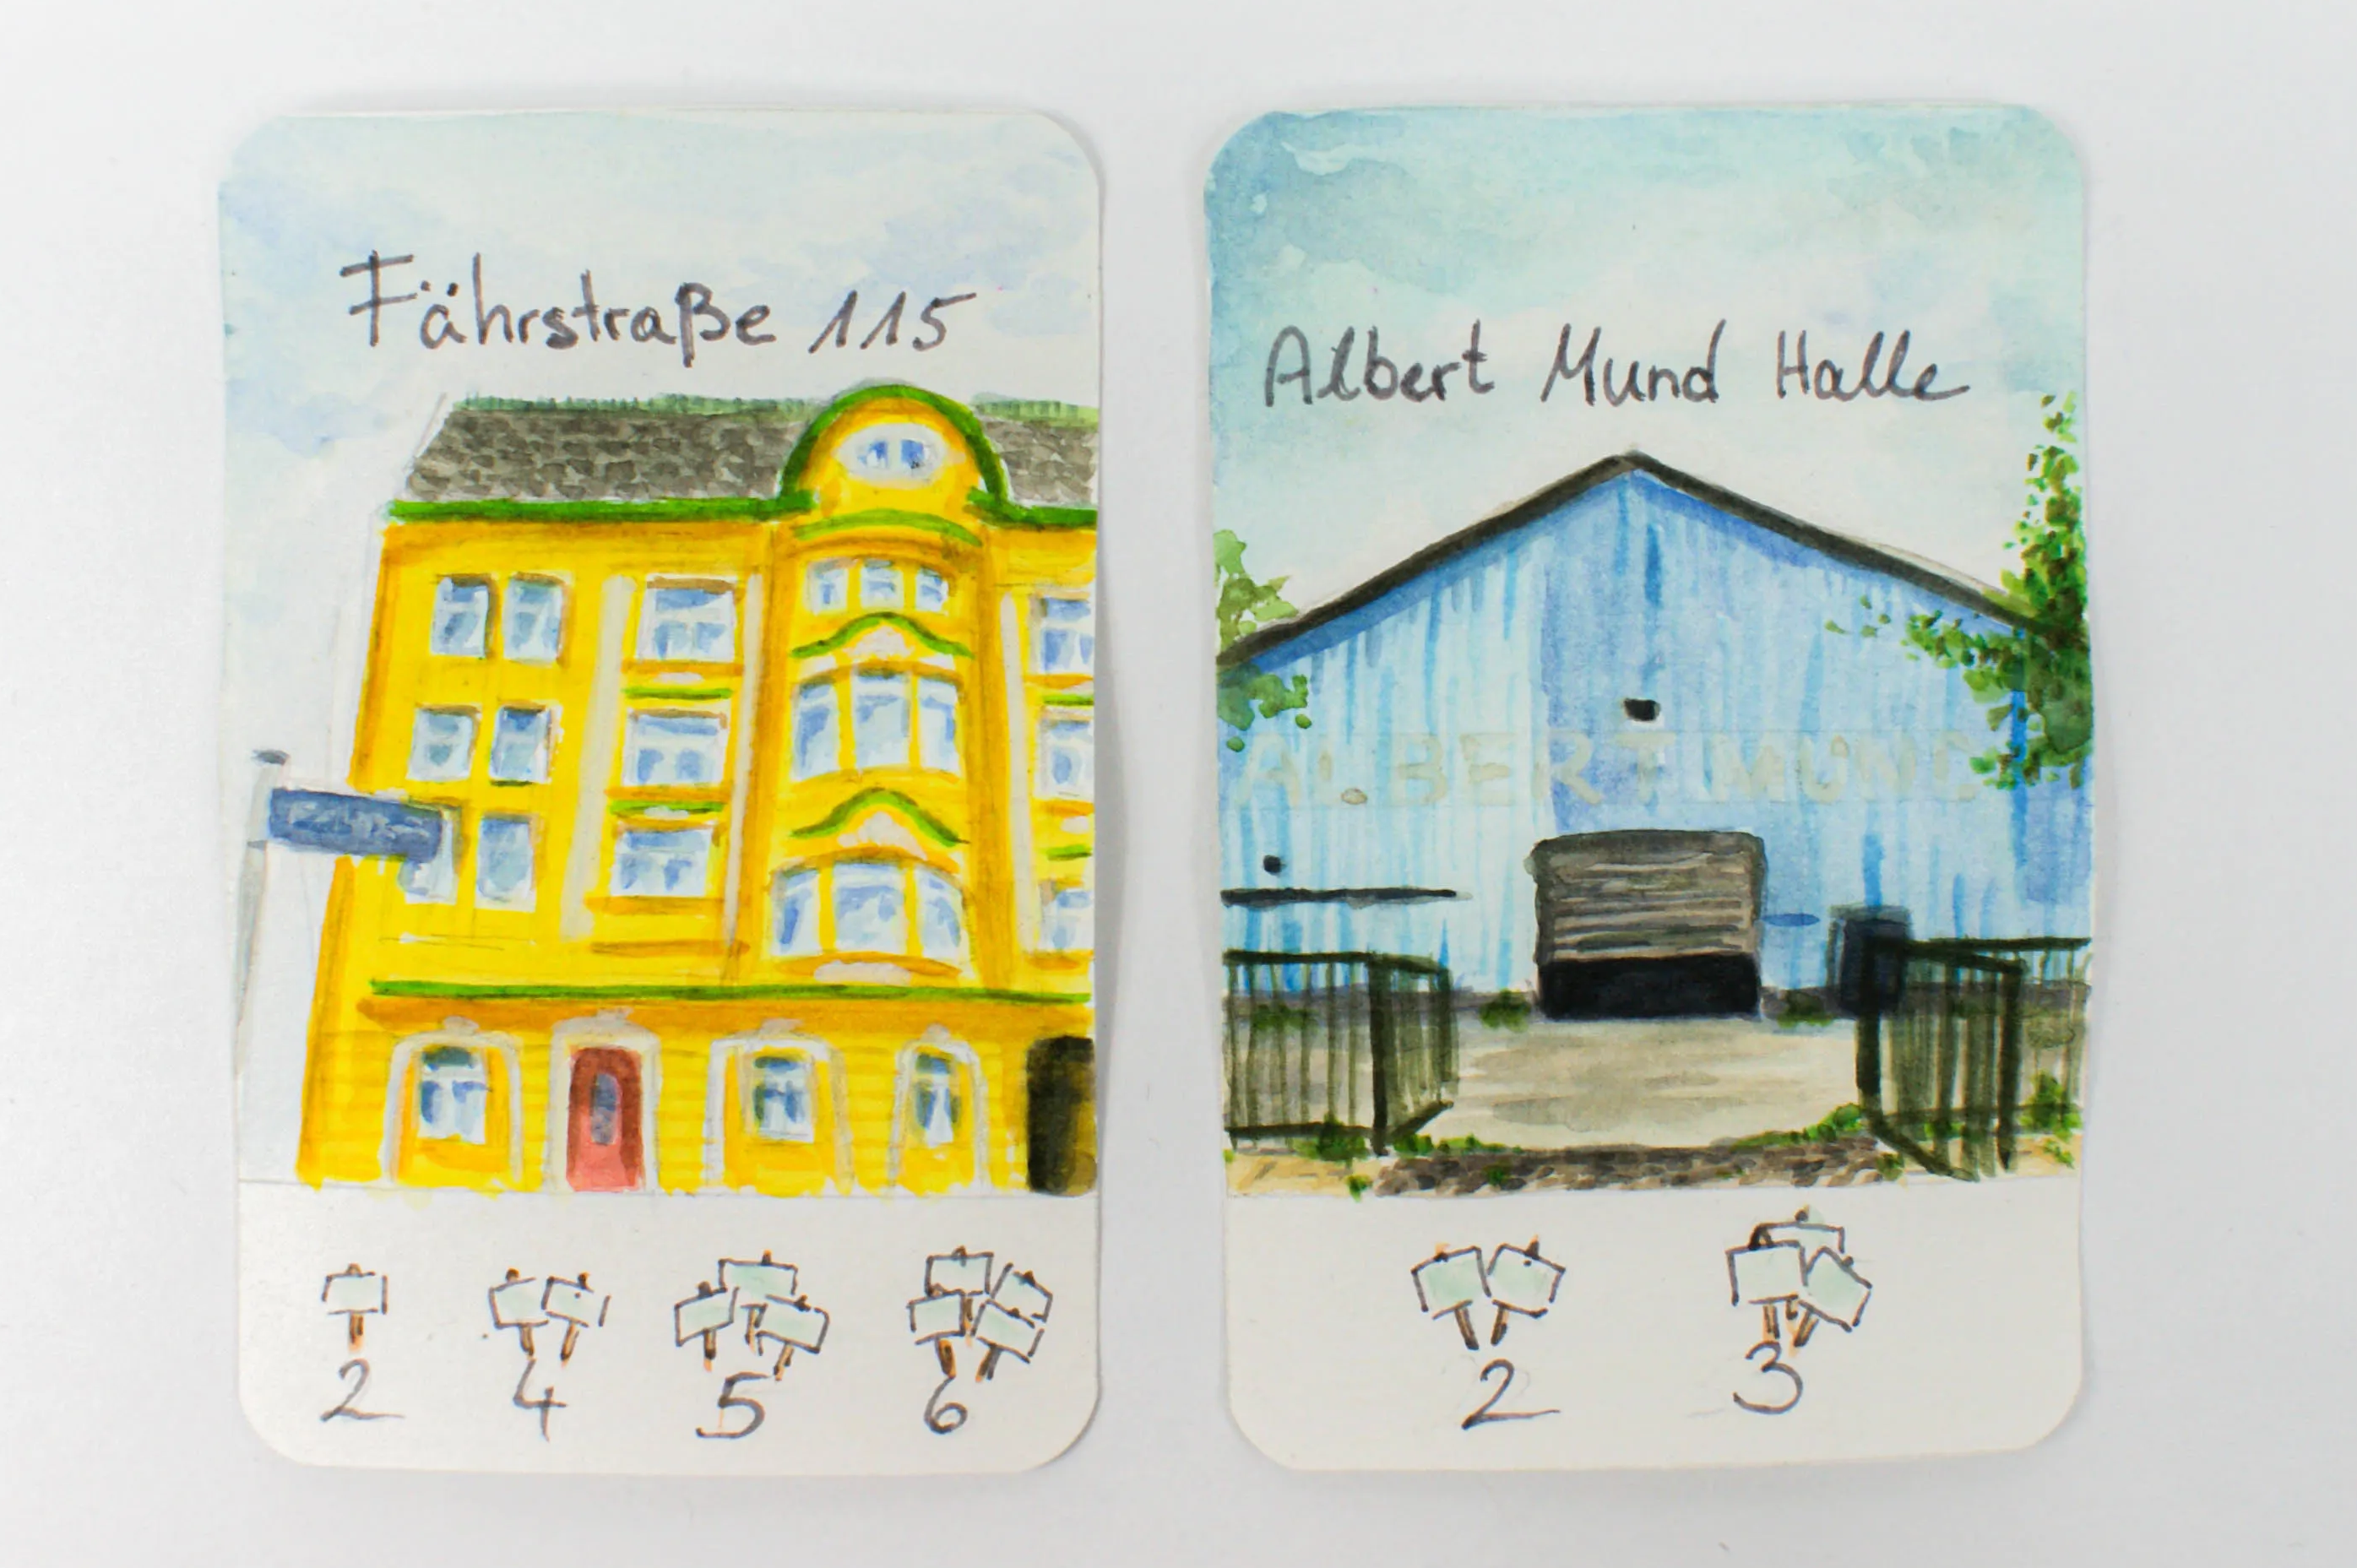 Fährstraße 115
2 4 5 6
Albert Mund Halle
ALBERT MUND
2 3